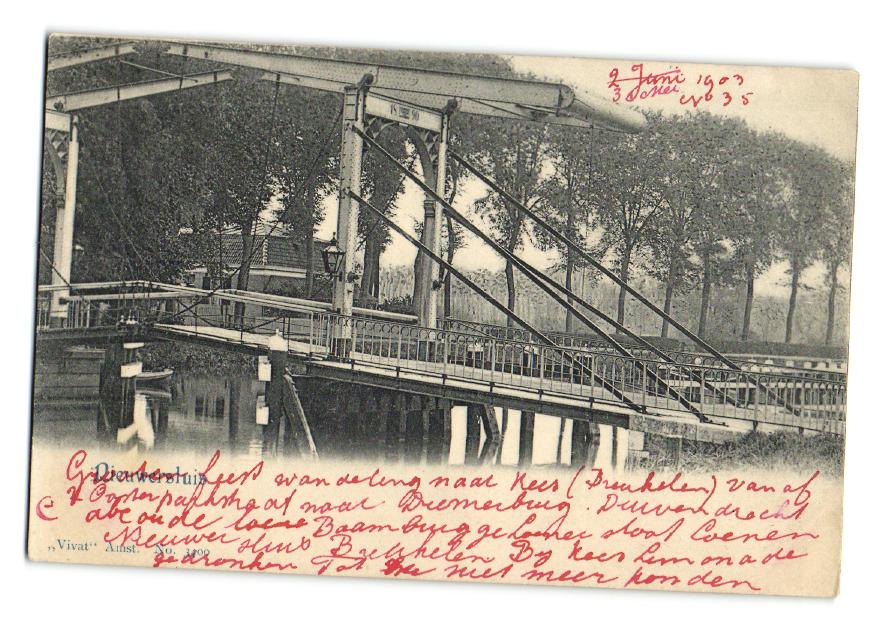 2 Juni 1903
30 Mei No 35
18 90
Nieuwersluis
Geesten Feest wandeling naar Kees (Breukelen) vanaf
Oosterparkstraat naar Diemerbrug. Duivendrecht
oude Baambrug sloot Loenen
Nieuwersluis Breukelen By Kees Limonade
gedronken Tot we niet meer konden
„Vivat“ Amst. No.